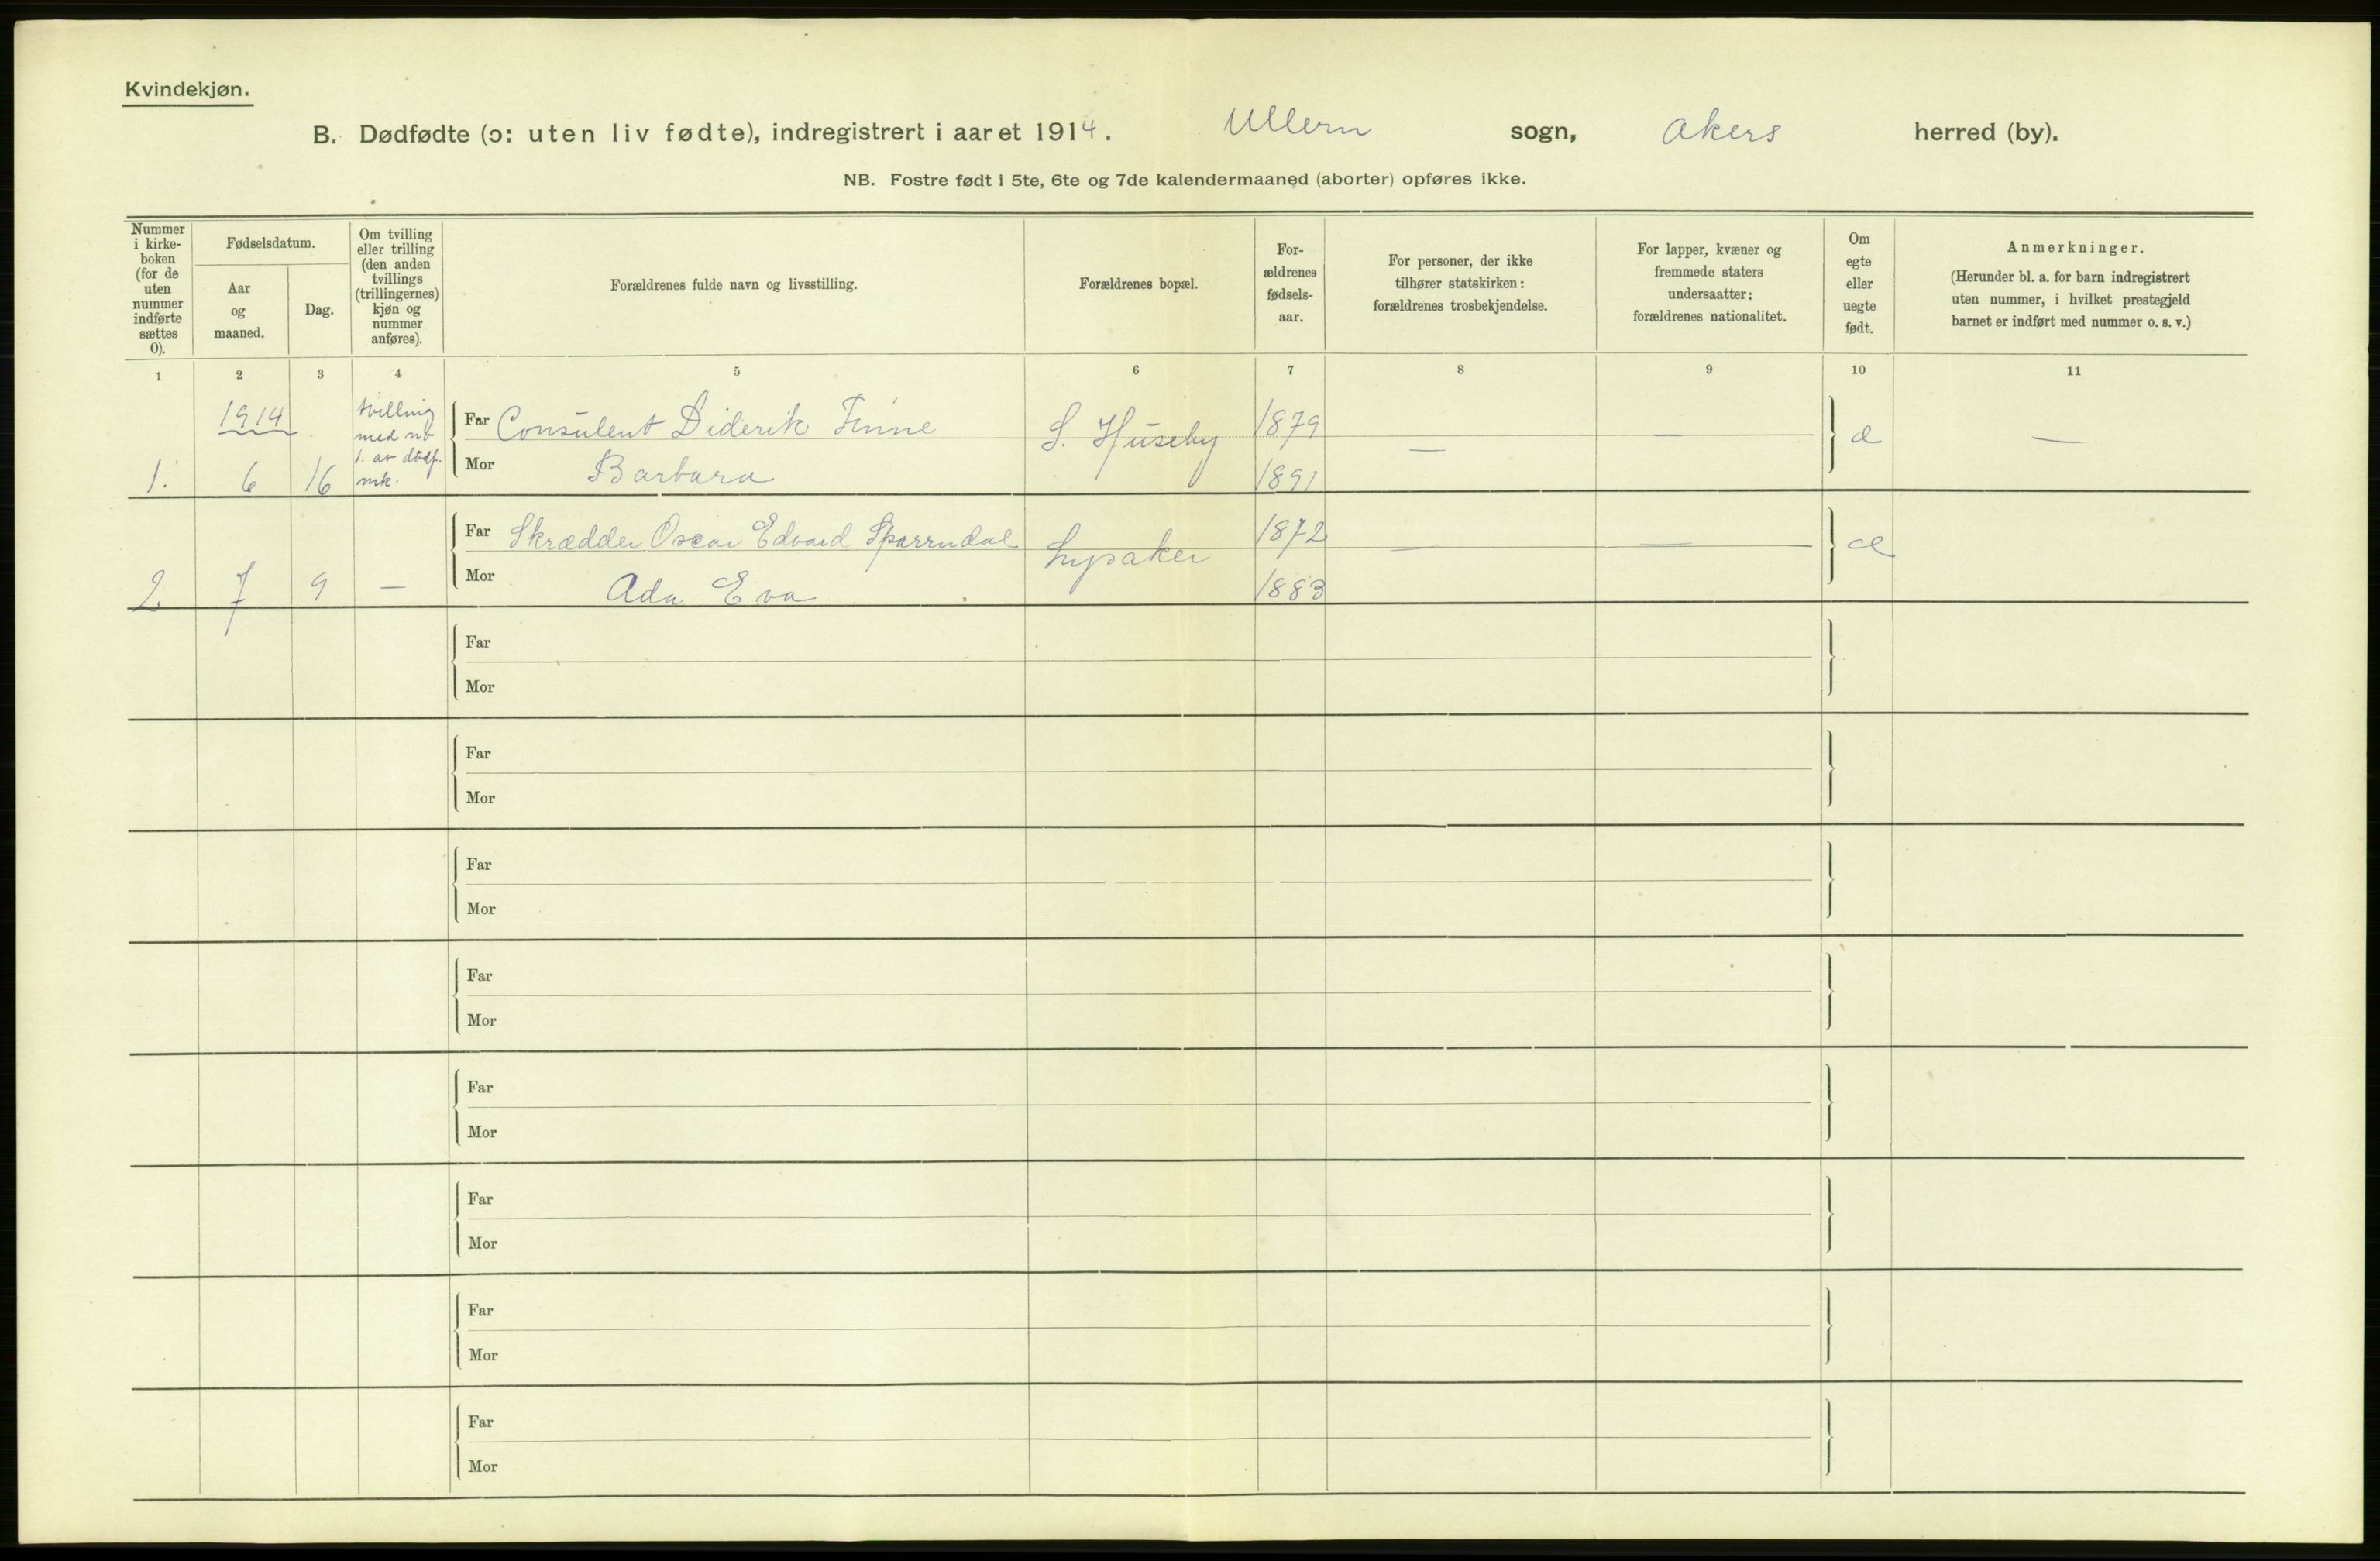 Kvindekjøn.
B. Dødfødte (ɔ: uten liv fødte), indregistrert i aaret 1914. Ullern sogn, Akers herred (by).
NB. Fostre født i 5te, 6te og 7de kalendermaaned (aborter) opføres ikke.
Nummer
i kirke-
boken
(for de
uten
nummer
indførte
sættes
0).
Fødselsdatum.
Aar
og
maaned.
Dag.
Om tvilling
eller trilling
(den anden
tvillings
(trillingernes)
kjøn og
nummer
anføres).
Forældrenes fulde navn og livsstilling.
Forældrenes bopæl.
For-
ældrenes
fødsels-
aar.
For personer, der ikke
tilhører statskirken:
forældrenes trosbekjendelse.
For lapper, kvæner og
fremmede staters
undersaatter:
forældrenes nationalitet.
Om
egte
eller
uegte
født.
Anmerkninger.
(Herunder bl. a. for barn indregistrert
uten nummer, i hvilket prestegjeld
barnet er indført med nummer o. s. v.)
1 2 3 4 5 6 7 8 9 10 11
1914
1. 6 16
tvilling
med nr
1. av dødf.
mk.
Far Consulent Diderik Finne
Mor Barbara
S. Huseby
1879
1891
— — æ —
2 7 9 —
Far Skrædder Oscar Edvard Sparrudal
Mor Ada Eva
Lysaker
1872
1883
— — æ
Far
Mor
Far
Mor
Far
Mor
Far
Mor
Far
Mor
Far
Mor
Far
Mor
Far
Mor